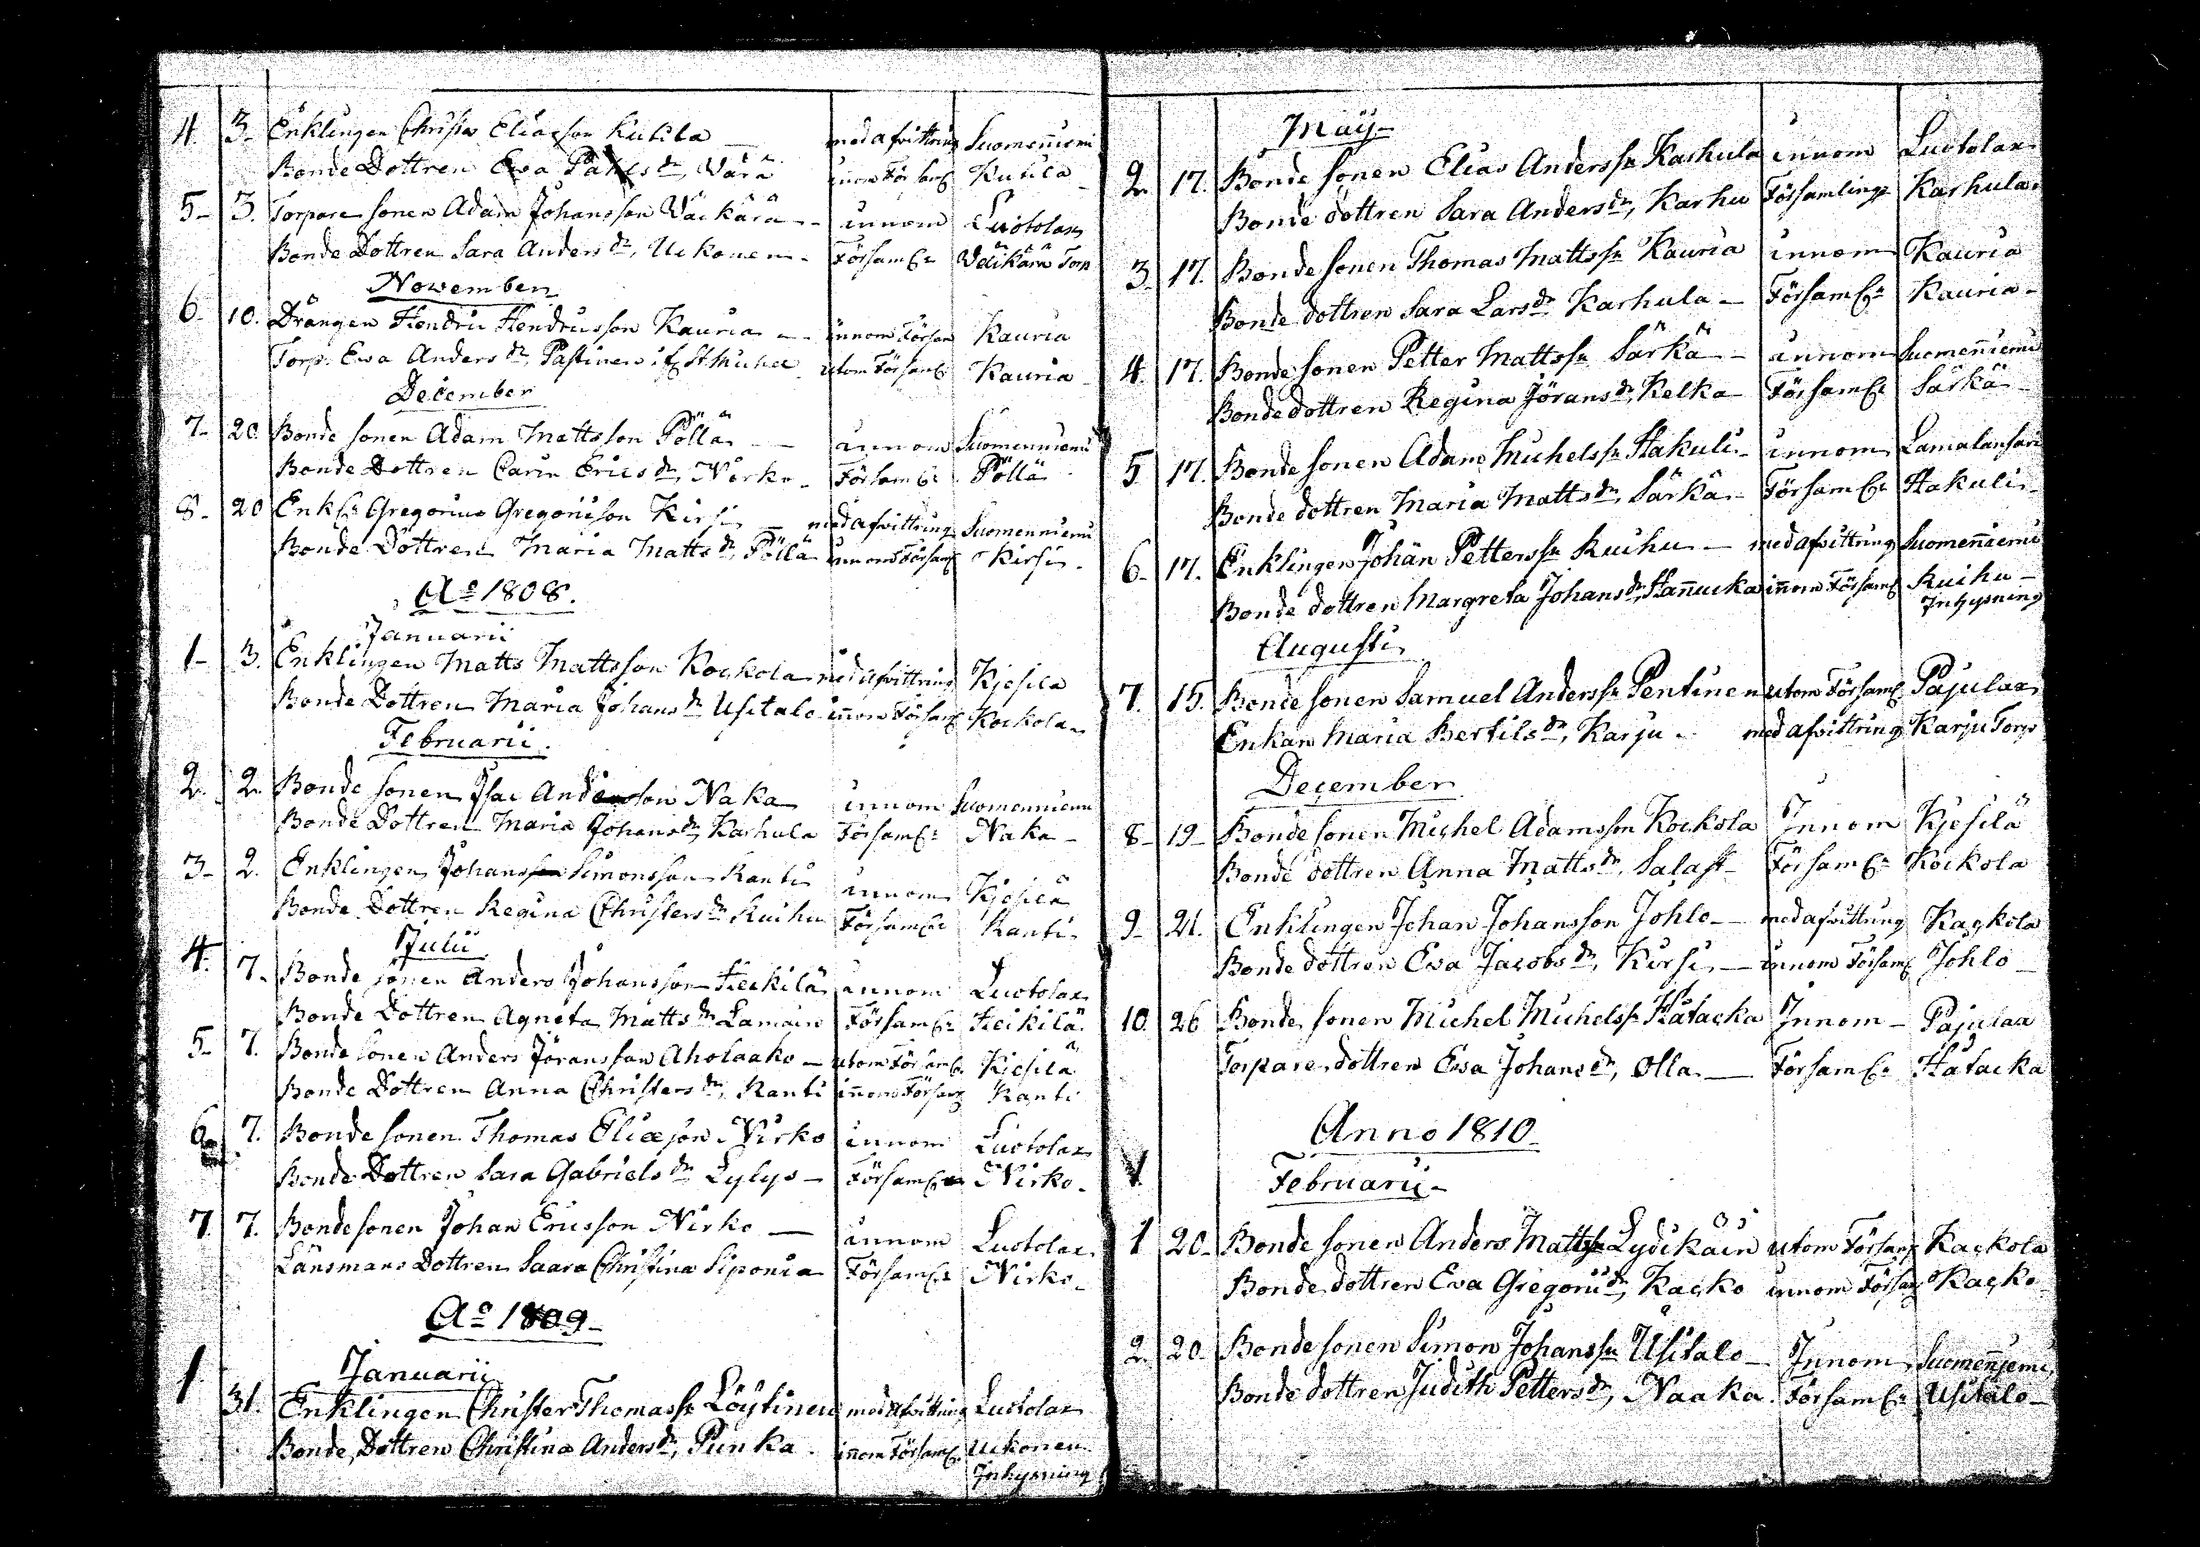 4. 3. Enklingen Christer Eliasson Kutila — med afvittring Suomenniemi
Bonde Dottren Ewa Pahlsdr, Värä innom Församl: Kutila
5. 3. Torpare sonen Adam Johansson Väikärä — innom Luotolax
Bonde Dottren Sara Andersdr, Uckonen — Församl: Väikärä Torp
November
6. 10. Drängen Hendric Hendricsson Kauria — innom Försam Kauria
Torp. Ewa Andersdr, Pastinen if St Michel utom Församl: Kauria
December
7. 20. Bonde sonen Adam Mattsson Pöllä — innom Suomenniemi
Bonde Dottren Carin Ericsdr, Nirko — Församl: Pöllä
8. 20 Enkl: Gregorius Gregoriison Kirsi — med afvittring Suomenniemi
Bonde Dottren Maria Mattsdr, Pöllä innom Församl Kirsi
Ao 1808.
Januarii
1. 3. Enklingen Matts Mattsson Kockola med afvittring Kjesilä
Bonde Dottren Maria Johansdr Usitalo innom Församl Kockola
Februarii.
2. 2. Bonde sonen Isac Andersson Naka innom Suomenniemi
Bonde Dottren Maria Johansdr, Karhula Församl: Naka
3. 2. Enklingen Johan Simonsson Kanti innom Kjesilä
Bonde Dottren Regina Christersdr Kuihu Församl: Kanti
Julii
4. 7. Bonde sonen Anders Johansson Heikilä innom Luotolax
Bonde Dottren Agneta Mattsdr Lamain Församl: Heikilä
5. 7. Bonde sonen Anders Jöransson Aholaako — utom Församl: Kjesilä
Bonde Dottren Anna Christersdr, Kanti innom Församl Kanti
6. 7. Bonde sonen Thomas Eliæson Nirko innom Luotolax
Bonde Dottren Sara Gabrielsdr Lylys — Församl: Nirko
7. 7. Bonde sonen Johan Ericsson Nirko — innom Luotolax
Länsmans Dottren Saara Christina Siponia Församl: Nirko
Ao 1809
Januarii
1 31. Enklingen Christer Thomass: Löytinen med afvittring Luotolax
Bonde Dottren Christina Andersdr, Punka innom Församl: Uckonen
Inhysning
May
2. 17. Bonde sonen Elias Anderssn Karhula innom Luotolax
Bonde dottren Sara Andersdr, Karhu Församling Karhula
3. 17. Bonde sonen Thomas Mattssn Kauria innom Kauria
Bonde dottren Sara Larsdr Karhula — Församl: Kauria
4. 17. Bonde sonen Petter Mattssn Särkä — innom Suomenniemi
Bonde dottren Regina Jöransdr, Kelka Församl: Särkä
5 17. Bonde sonen Adam Michelssn Hakuli — innom Lamalansari
Bonde dottren Maria Mattsdr, Särkä — Församl: Hakuli
6. 17. Enklingen Johan Petterssn Kuihu — med afvittring Suomenniemi
Bonde dottren Margreta Johansdr, Hannucka innom Församl Kuihu
Inhysning
Augusti
7. 15. Bonde sonen Samuel Anderssn Pentinen utom Församl: Pajulax
Enkan Maria Bertilsdr, Karju — med afvittring Karju Torp
December
8. 19. Bonde sonen Michel Adamsson Kockola Innom Kjesilä
Bonde dottren Anna Mattsdr, Salast Församl: Kockola
9. 21. Enklingen Johan Johansson Johlo — med afvittring Kackola
Bonde dottren Ewa Jacobsdr, Kirsi — innom Församl Johlo
10. 26 Bonde sonen Michel Michelssn Hatacka Innom — Pajulax
Torpare dottren Ewa Johansdr, Olla — Församl: Hatacka
Anno 1810
Februarii
1 20. Bonde sonen Anders Mattssn Lydikäin utom Församl Kackola
Bonde dottren Eva Gregoriidr, Kacko innom Församl Kacko
2. 20 Bonde sonen Simon Johanssn Usitalo — Innom Suomenniemi
Bonde dottren Judith Pettersdr, Naaka. Församl: Usitalo